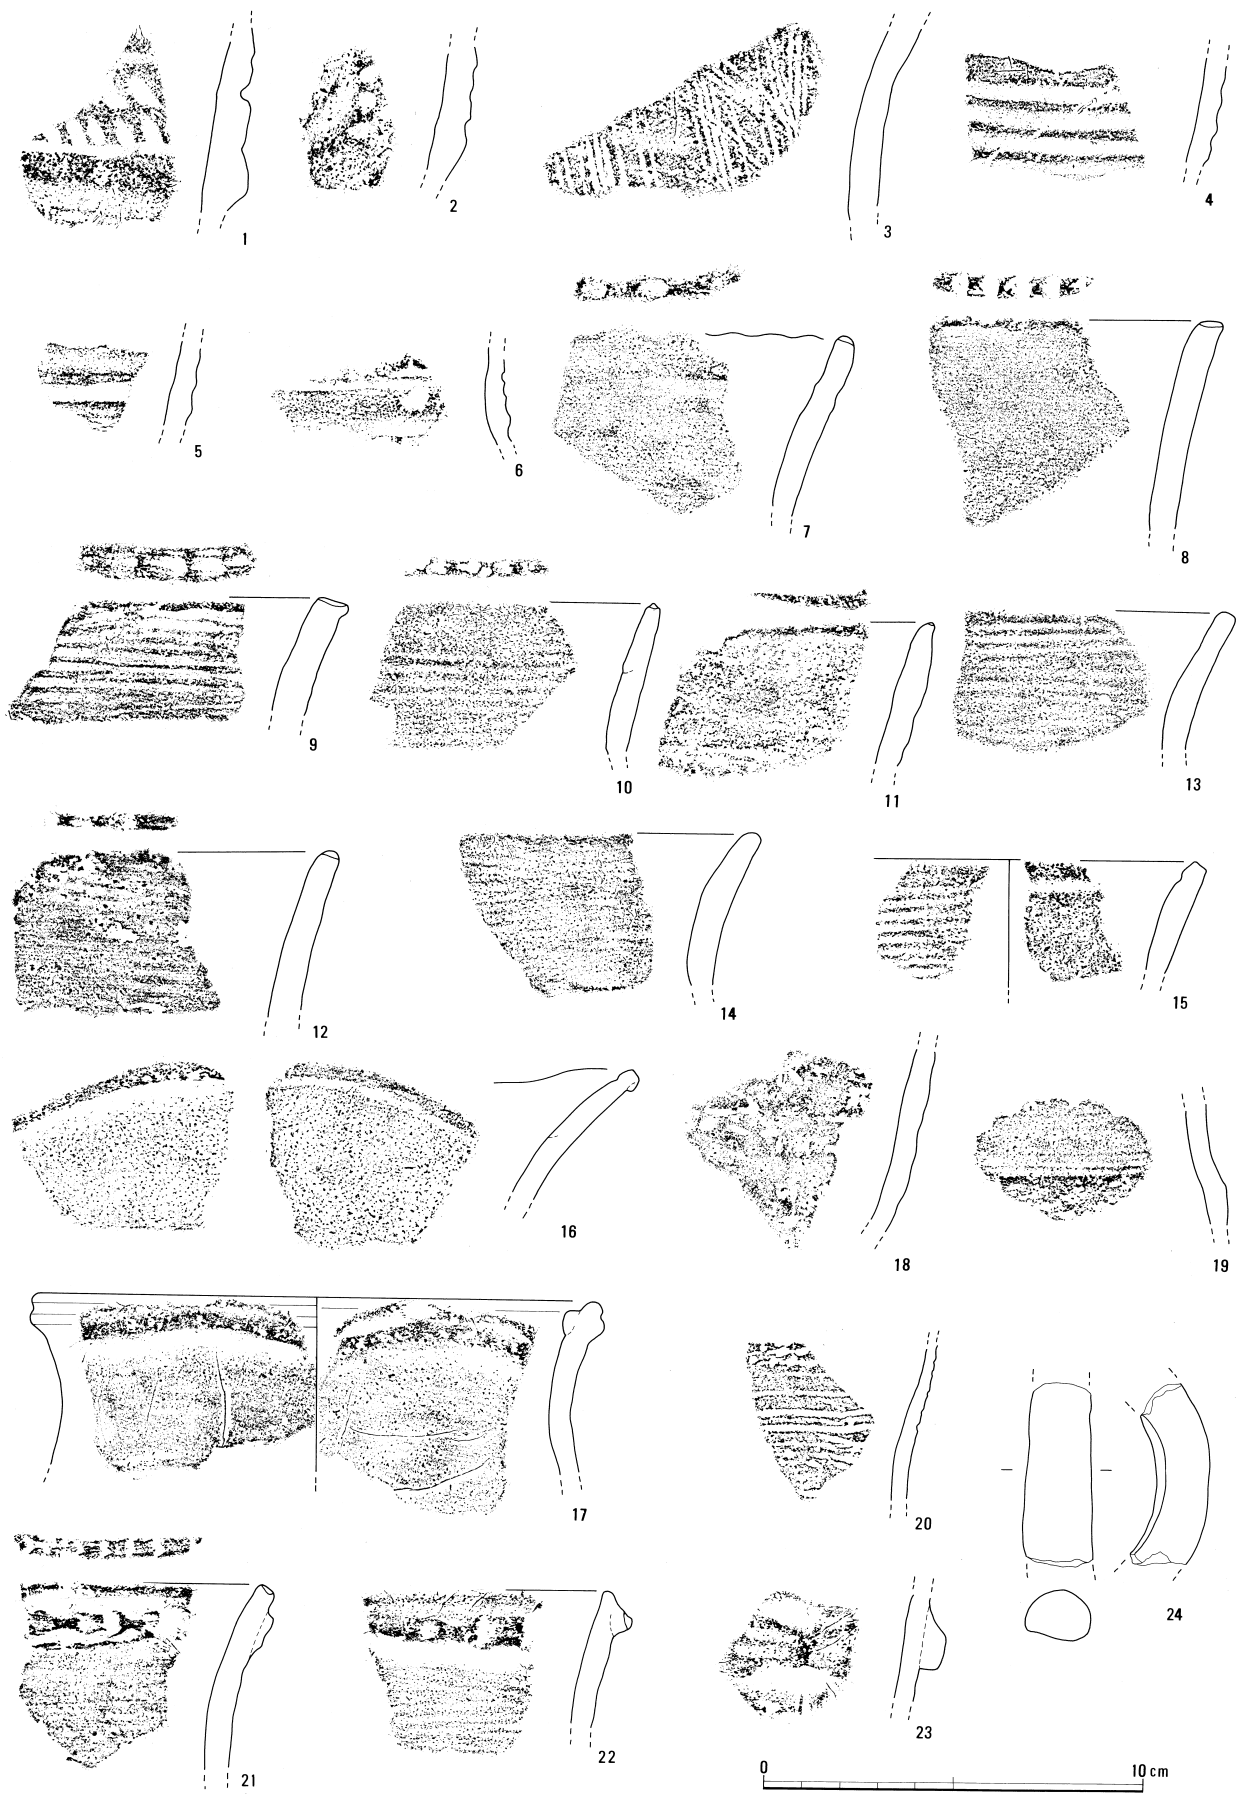 1
2
3
4
5
6
7
8
9
10
11
13
12
14
15
16
18
19
17
20
24
21
22
23
0 10 cm